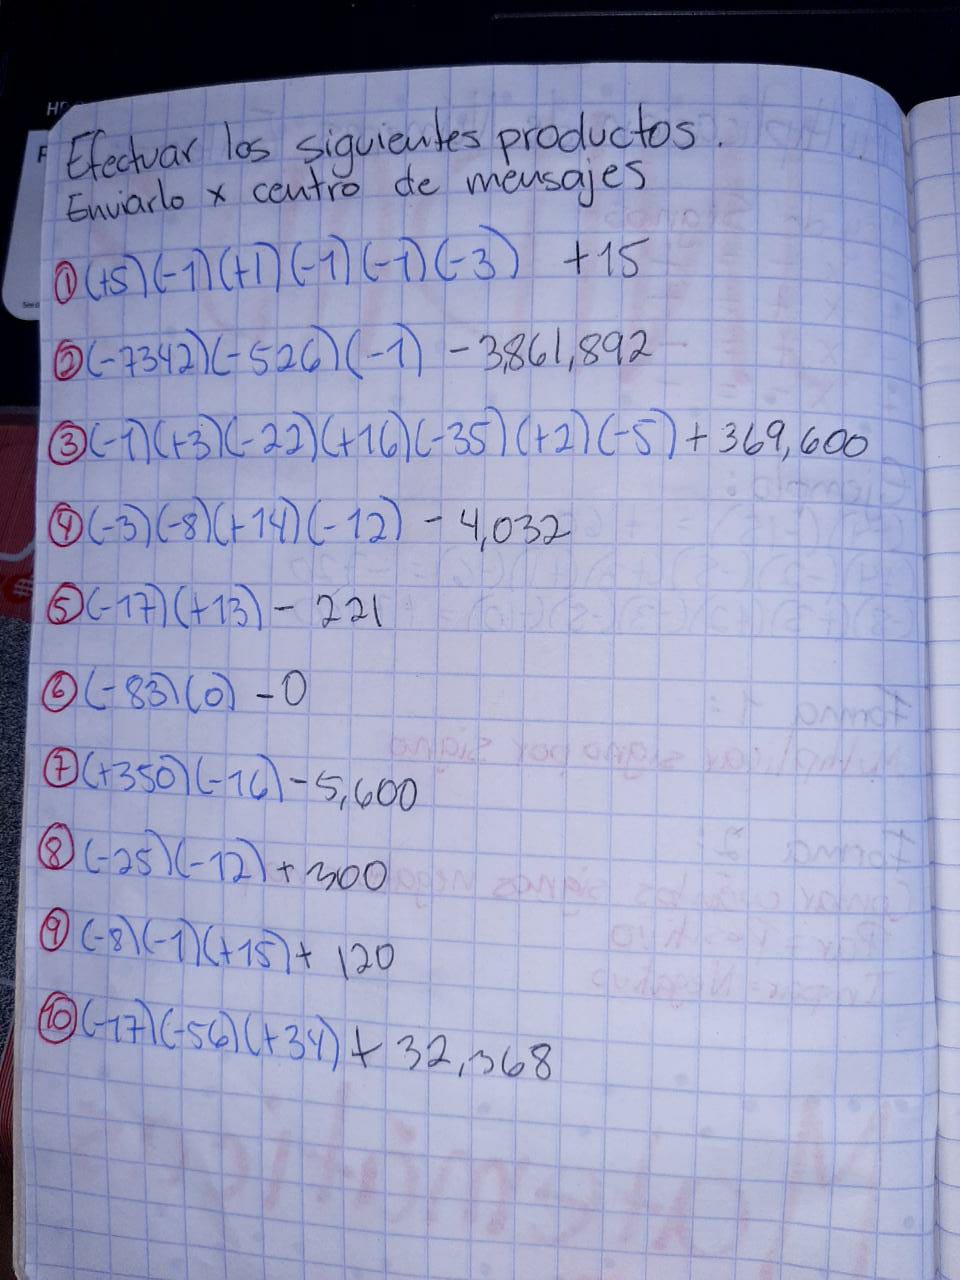 Efectuar los siguientes productos.
Enviarlo x centro de mensajes
① (+5)(-1)(+1)(-1)(-1)(-3) +15
② (-7342)(-526)(-1) -3,861,892
③ (-1)(+3)(-22)(+16)(-35)(+2)(-5) +369,600
④ (-3)(-8)(+14)(-12) -4,032
⑤ (-17)(+13) -221
⑥ (-83)(0) -0
⑦ (+350)(-16) -5,600
⑧ (-25)(-12) +300
⑨ (-8)(-1)(+15) +120
⑩ (-17)(-56)(+34) +32,368